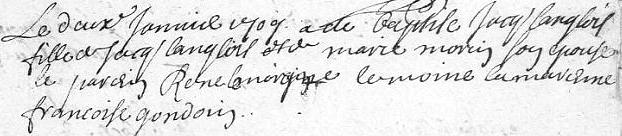 Le deux.e Janvier 1709 a ete baptise Jacq langlois
fille de Jacq langlois et de marie morin son epouse
le parein Rene lemoine la mareine
francoise gondouin